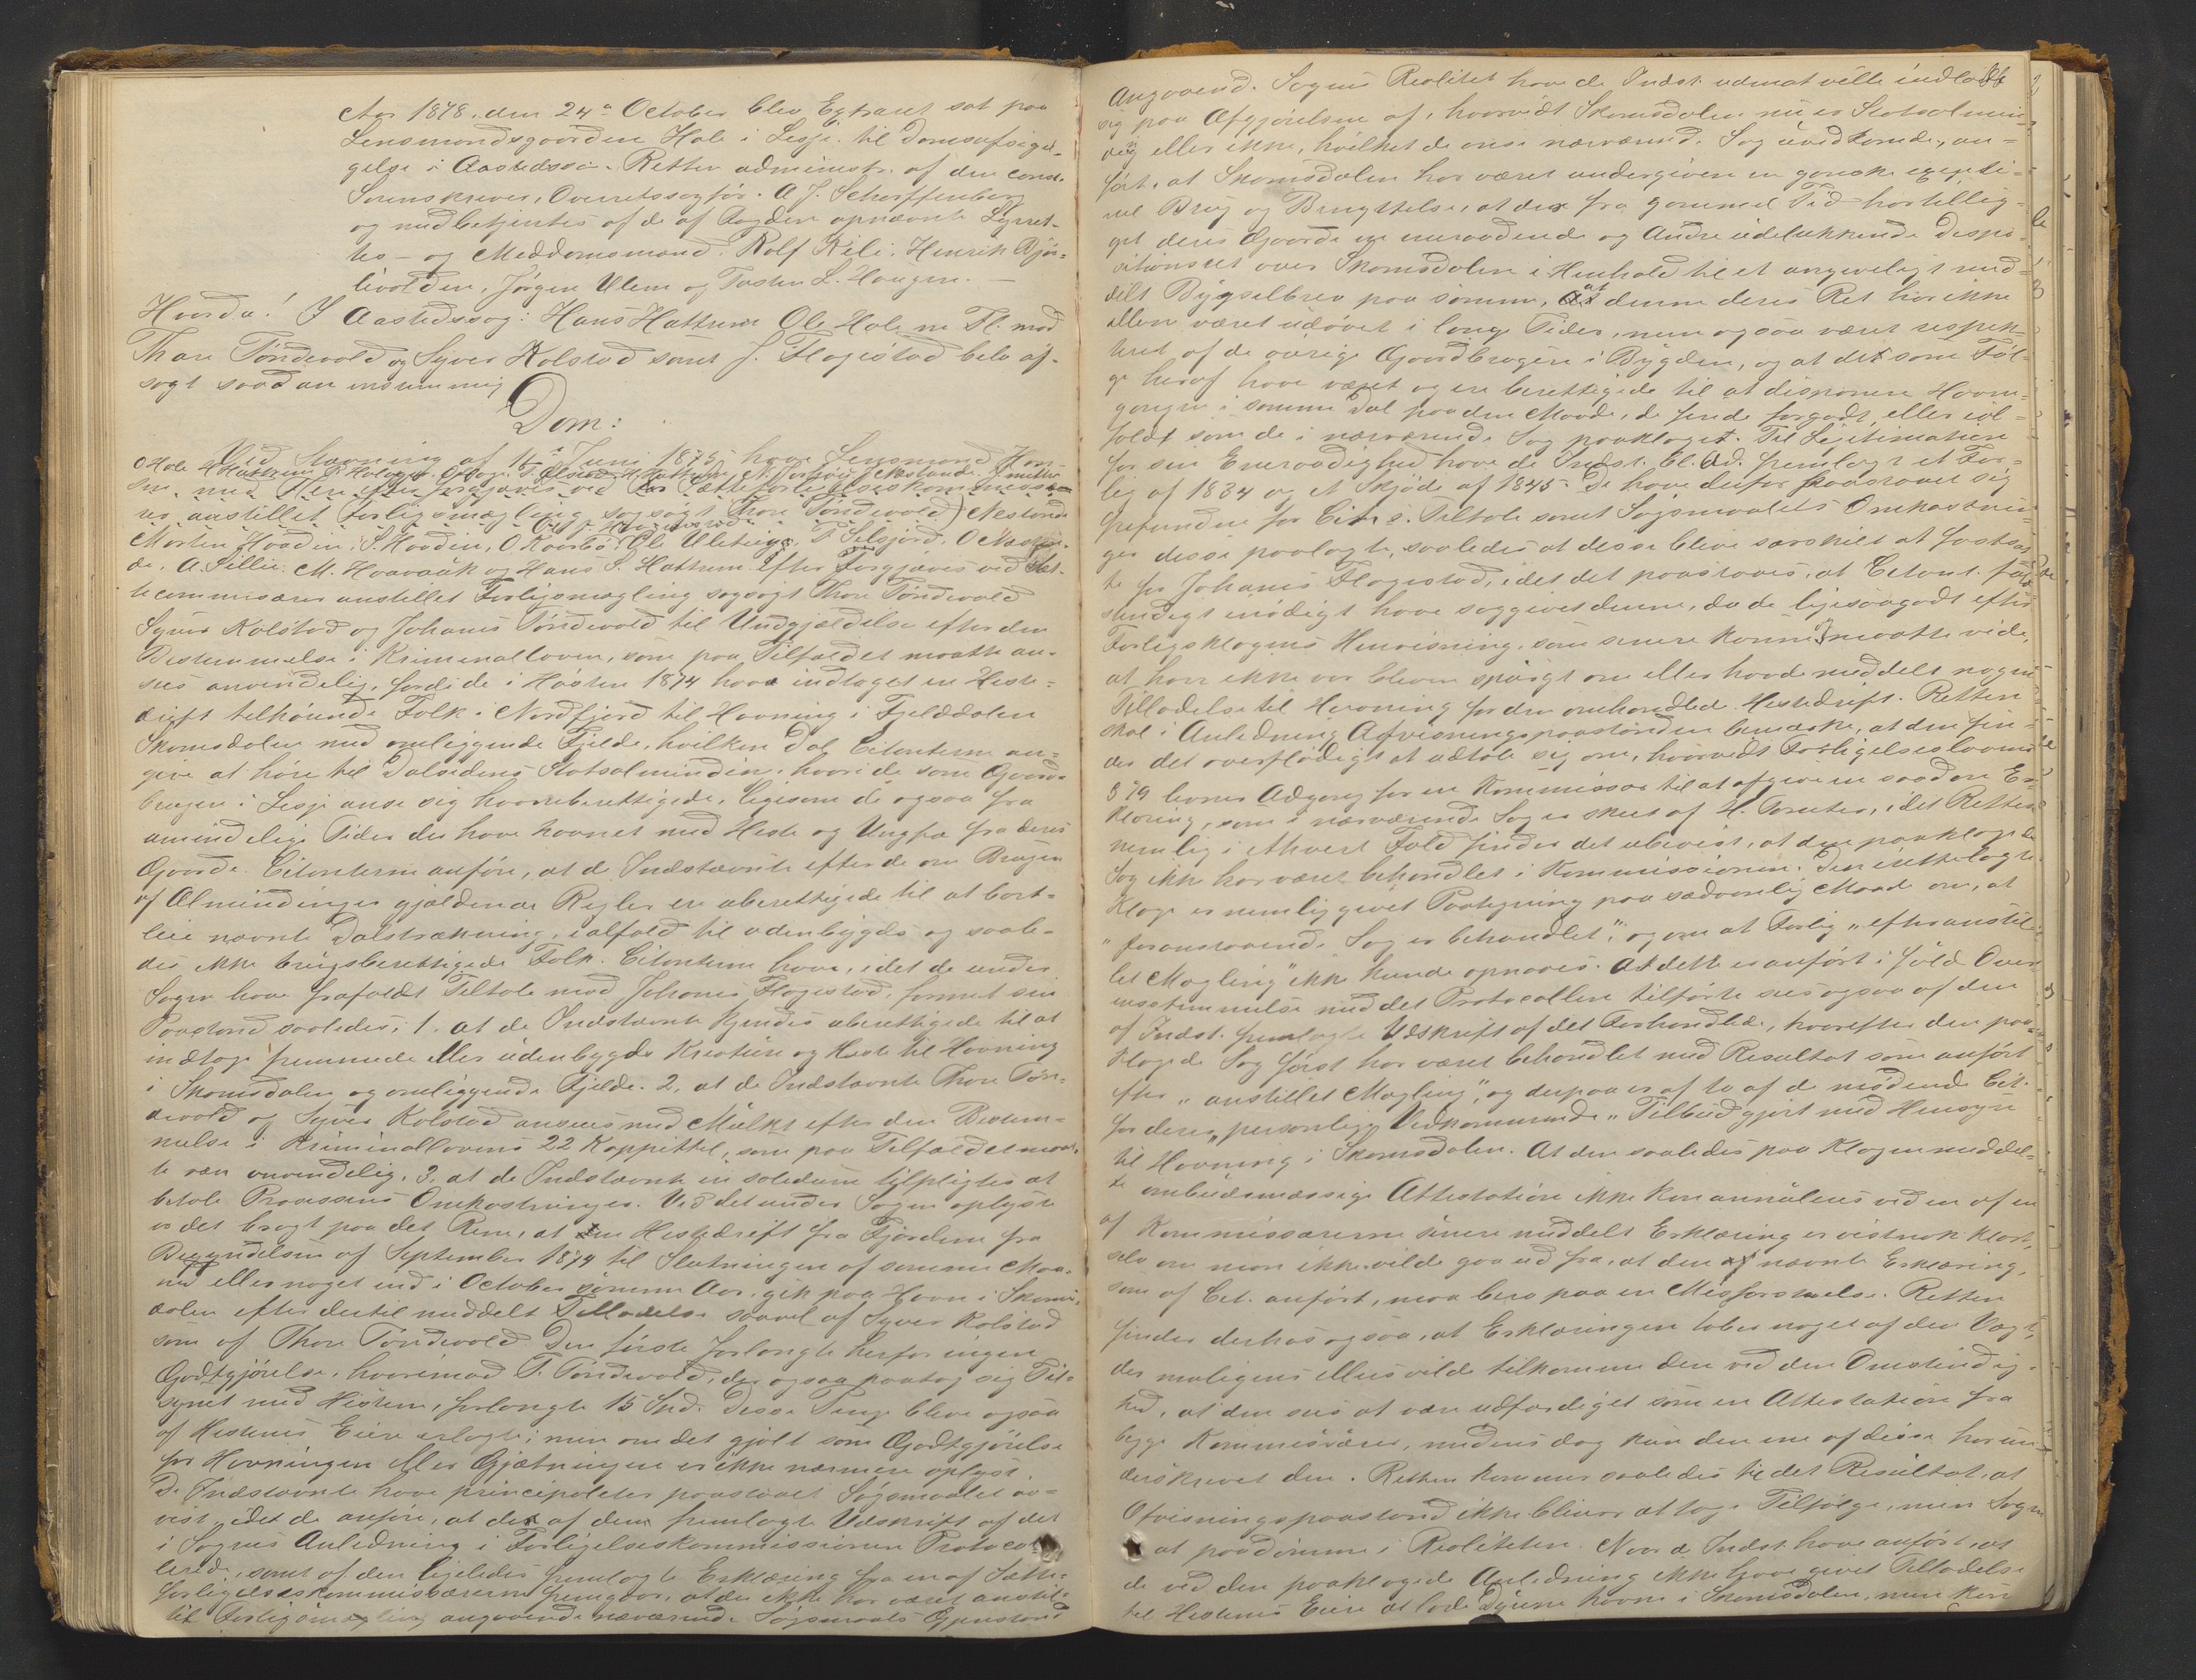 Aar 1878, den 24de October blev Extraret sat paa
Lensmandsgaarden Hole i Lesje til Domsafsigel-
gelse i Aastedssa. Retten administr. af den const.
Sorenskriver, Overretssagfør. A J. Scharffenberg
og medbetjentes af de af Fogden opnævnte Lagret-
tes- og Meddomsmænd. Rolf Kili, Henrik Bjør-
livolden, Jørgen Ulem og Tosten L. Haugen. -
Hvorda! I Aastedssag: Hans Hattrem Ole Hole m Fl. mod
Thore Tøndevold og Syver Kolstad samt J. Flogistad belv af-
sagt saadan eenstemmig
Dom:
Ved Stævning af 11te Juni 1875 have Lensmand
O Hole H Hattrem
efter forgjæves ved Forligelseskommissæ-
rer anstillet Forligsmægling sagsøgt Thore Tøndevold) Nestande
Morten Hoadin, S. Hoadin, O. Ole Uleteig, T Selsjord, O
de, A. Lillie. M. Hvavaak og Hans P. Hattrem efter Forgjæves ved Sæt-
tecommisærer anstillet Forligsmægling sagsøgt Thore Tøndevold
Syver Kolstad og Johanis Tøndevold til Undgjældelse efter den
Bestemmelse i Kriminalloven, som paa Tilfældet maatte an-
sees anvendelig, fordi de i Høsten 1874 have indtaget en Heste-
drift tilhørende Folk i Nordfjord til Havning i Fjelddalen
Skamsdalen med omliggende Fjelde, hvilken Dal Citanterne an-
give at høre til Dalsidens Statsalminding, hvori de som Gaard-
brugere i Lesje anse sig havneberettigede, ligesom de ogsaa fra
umindelige Tider der have havnet med Heste og Ungfæ fra deres
Gaarde. Citanterne anføre, at de Indstævnte efter de om Brugen
af Almindinger gjældende Regler ere uberettigede til at bort-
leie nævnte Dalstrækning, ialfald til udenbygds og saale-
des ikke brugsberettigede Folk. Citanterne have, idet de under
Sagen have frafaldt Tiltale mod Johanis Flogistad, formet sin
Paastand saaledes; 1. at de Indstævnte kjendes uberettigede til at
indtage fremmede eller udenbygds Kreature og Heste til Havning
i Skamsdalen og omliggende Fjelde. 2. at de Indstævnte Thore Tøn-
devold og Syver Kolstad ansees med Mulkt efter den Bestem-
melse i Kriminallovens 22 Kappittel, som paa Tilfældet maat-
te være anvendelig. 3. at de Indstævnte in solidum tilpligtes at
betale Processens Omkostninger. Ved det under Sagen oplyste
er det bragt paa det Rene, at en Hestedrift fra Fjordene fra
Begyndelsen af September 1874 til Slutningen af samme Maa-
ned eller noget ind i October samme Aar, gik paa Havn i Skams-
dalen efter dertil meddelt Tilladelse saavel af Syver Kolstad
som af Thore Tøndevold. Den første forlangte herfor ingen
Godtgjørelse, hvorimod T. Tøndevold, der ogsaa paatog sig Til-
synet med Hestene, forlangte 15 Spd. Disse Penge bleve ogsaa
af Hestenes Eiere erlagte; men om det gjalt som Godtgjørelse
for Havningen eller Gjætningen er ikke nærmere oplyst.
De Indstævnte have principaleter paastaaet Søgsmaalet av-
vist, idet de anføre, at det af den fremlagte Udskrift af det
i Sagens Anledning i Forligelseskommissionen Protocol-
lerede, samt af den ligeledes fremlagte Erklæring fra en af Sætte-
forligelseskommissærerne fremgaar, at der ikke har været anstil-
let Forligsmægling angaaende nærværende Søgsmaals Gjenstand
Angaaend. Sagens Realitet have de Indst. udenat ville indlade
sig paa Afgjørelsen af, hvorvidt Skamsdalen nu er Statsalmin-
ding eller ikke, hvilket de anse nærværend. Sag uvedkomde., an-
ført, at Skamsdalen har været undergiven en ganske exepti-
nel Brug og Benyttelse, at der fra gammel Tid har tillig-
get deres Gaarde en eneraadende og Andre udelukkende Dispo-
sitionsret over Skamsdalen i Henhold til et angivelig med-
delt Bygselbrev paa samme, at denne deres Ret har ikke
allene været udøvet i lange Tider, men ogsaa været respek-
teret af de øvrige Gaardbrugere i Bygden, og at det som Føl-
ge heraf have været og ere berettigede til at disponere Havne-
gangen i samme Dal paa den Maade, de finde forgodt, eller ial-
fald som de i nærværende Sag paaklaget. Til Legitimation
for sin Eneraadighed have de Indst. bl. Ad. fremlagt et For-
lig af 1834 og et Skjøde af 1845. De have derfor paastaaet sig
frifundne for Cit.s. Tiltale samt Søgsmaalets Omkostnin-
ger disse paalagte, saaledes at disse blive særskilt at fastsæt-
te for Johanis Flogistad, idet det paastaaes, at Citant. for-
unødigt have saggivet denne, da de ligesaagodt efter
Forligsklagens Henvisning, som senere kunne og maatte vide,
at han ikke var bleven spurgt om eller havde meddelt nogen
Tilladelse til Havning for den omhandled. Hestedrift. Retten
skal i Anledning Afvisningspaastanden bemærke, at den fin-
der det overflødigt at udtale sig om, hvorvidt Forligelseslovens
§ 79 levner Adgang for en Kommissær til at afgive en saadan Er-
klæring, som i nærværende Sag er skeet af H. Toruten, idet Retten
nemlig i ethvert Fald finder det ubevist, at den paaklagede
Sag ikke har været behandlet i Kommissionen. Den irettelagte
Klage er nemlig givet Paategning paa sædvanlig Maade om, at
"foranstaaende Sag er behandlet", og om at Forlig "efter anstil-
let Mægling" ikke kunde opnaaes. At dette er anført i fuld Over-
ensstemmelse med det Protocollen tilførte sees ogsaa af den
af Indst. fremlagte Udskrift af det Forhandlede, hvorefter den paa-
klagede Sag først har været behandlet med Resultat som anført
efter "anstillet Mægling", og derpaa er af to af de mødende Cit.
for deres "personlige Vedkommende" Tilbud gjort med Hensyn
til Havning i Skamsdalen. At den saaledes paa Klagen meddel-
te embedsmæssige Attestation ikke kan annulleres ved en af en
af Kommissærerne senere meddelt Erklæring er vistnok klart,
selv om man ikke vilde gaa ud fra, at den nævnte Erklæring,
som af Cit. anført, maa bero paa en Misforstaaelse. Retten
finder derhos ogsaa, at Erklæringen taber noget af den Vægt,
der muligens ellers vilde tilkomme den ved den Omstændig-
hed, at den sees at være udfærdiget som en Attestation fra
begge Kommisærer, medens dog kun den ene af disse har un-
derskrevet den. Retten kommer saaledes til det Resultat, at
Afvisningspaastand ikke bliver at tage Tilfølge, men Sagen
at paadømme i Realiteten. Naar de Indst. have anført, at
de ved den paaklagede Anledning ikke have givet Tilladelse
til Hestenes Eiere at lade Dyrene havne i Skamsdalen, men kun